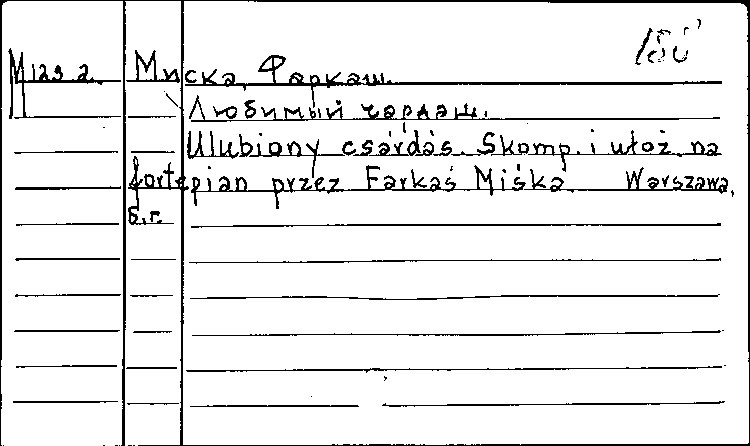 Миска, Фаркаш.
Любимый чардаш.
Ulubiony csárdás. Skomp. i ułoż. na
fortepian przez Farkaś Miśka. Warszawa,
б.г.